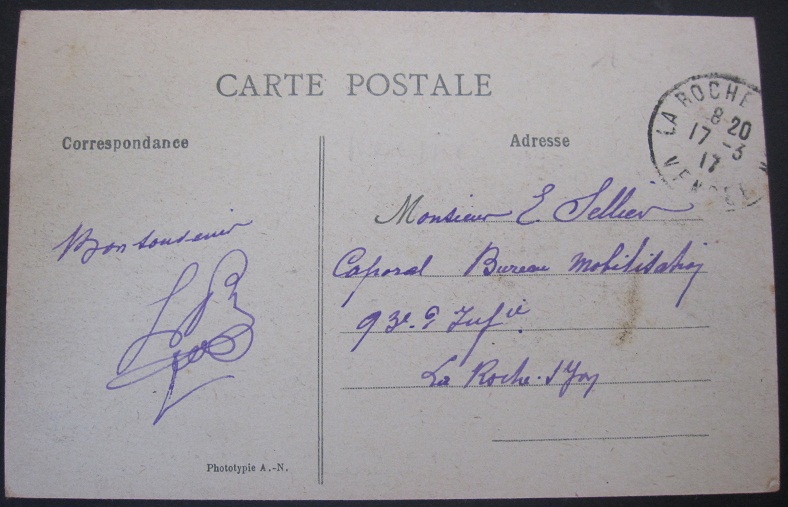 CARTE POSTALE
Correspondance
Adresse
LA ROCHE
8-20
17 -3
17
VENDEE
Bon souvenir
Monsieur E. Sellier
Caporal Bureau Mobilisation
93e Infie
La Roche s/Yon
Phototypie A.-N.